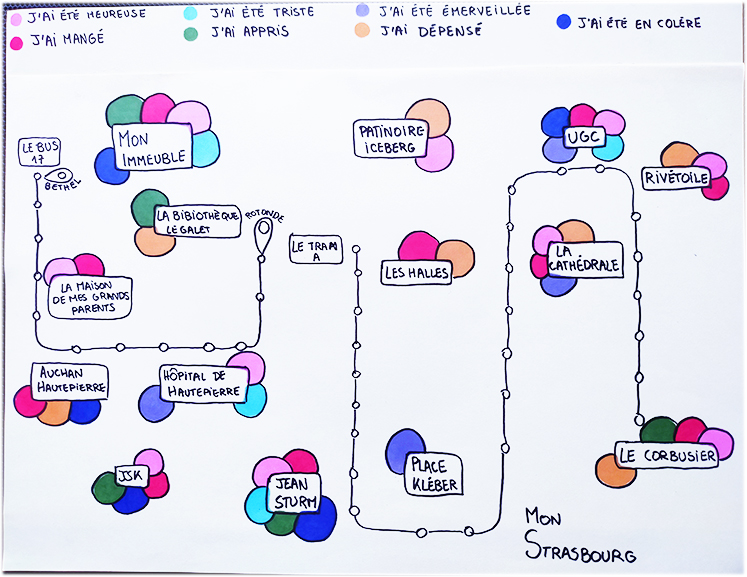 J'AI ÉTÉ HEUREUSE
J'AI ÉTÉ TRISTE
J'AI ÉTÉ ÉMERVEILLÉE
J'AI ÉTÉ EN COLÈRE
J'AI MANGÉ
J'AI APPRIS
J'AI DÉPENSÉ
LE BUS
17
BETHEL
MON
IMMEUBLE
PATINOIRE
ICEBERG
UGC
RIVÉTOILE
LA BIBIOTHÈQUE
LE GALET
ROTONDE
LE TRAM
A
LES HALLES
LA
CATHÉDRALE
LA MAISON
DE MES GRANDS
PARENTS
AUCHAN
HAUTEPIERRE
HÔPITAL DE
HAUTEPIERRE
JSK
JEAN
STURM
PLACE
KLÉBER
LE CORBUSIER
MON
STRASBOURG